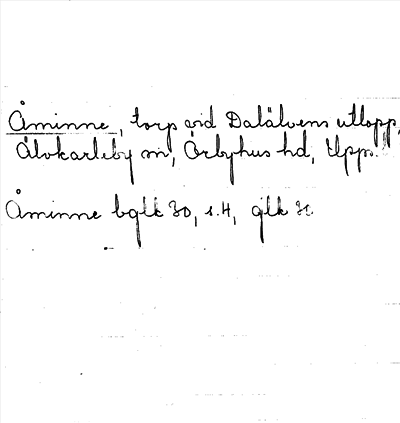 Åminne, torp vid Dalälvens utlopp,
Älvkarleby sn, Örbyhus hd, Upps.
Åminne bglk 30, s. 4, glk 30